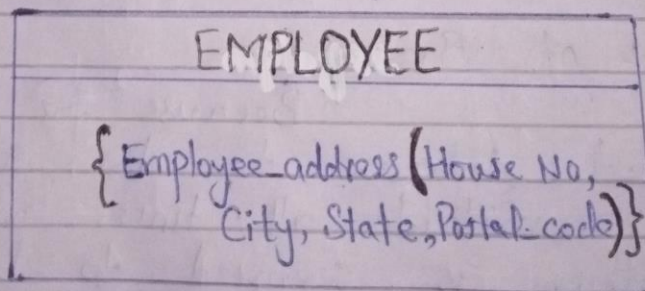 EMPLOYEE
{Employee_address(House No,
City, State, Postal_code)}